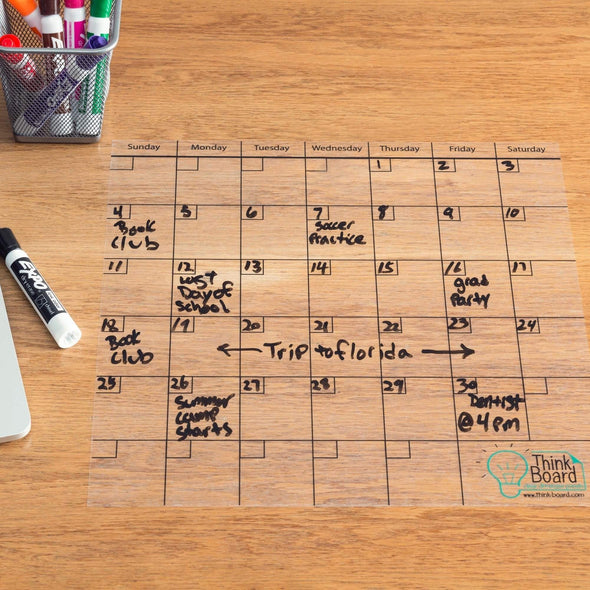 EXPO
Sunday Monday Tuesday Wednesday Thursday Friday Saturday
1 2 3
4 5 6 7 8 9 10
Book
Club
Soccer
Practice
11 12 13 14 15 16 17
Last
Day of
School
grad
Party
18 19 20 21 22 23 24
Book
Club
← Trip to florida →
25 26 27 28 29 30
Summer
camp
starts
Dentist
@ 4 pm
Think
Board
www.think-board.com
EXPO